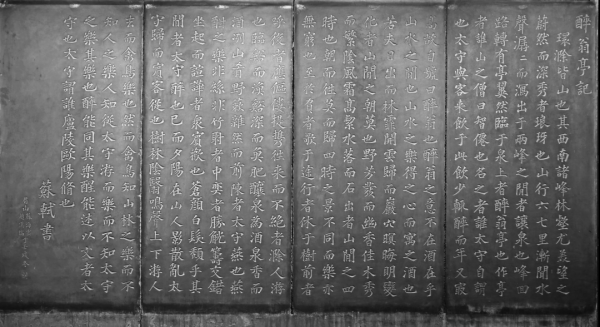 醉翁亭記
環滁皆山也其西南諸峰林壑尤美望之
蔚然而深秀者琅琊也山行六七里漸聞水
聲潺二而瀉出于兩峰之間者讓泉也峰回
路轉有亭翼然臨于泉上者醉翁亭也作亭
者誰山之僧曰智僊也名之者誰太守自謂
也太守與客來飲于此飲少輒醉而年又最
高故自號曰醉翁也醉翁之意不在酒在乎
山水之間也山水之樂得之心而寓之酒也
若夫日出而林霏開雲歸而巖穴暝晦明變
化者山間之朝莫也野芳發而幽香佳木秀
而繁陰風霜高絜水落而石出者山間之四
時也朝而往莫而歸四時之景不同而樂亦
無窮也至於負者歌于途行者休于樹前者
呼後者應傴僂提攜往來而不絕者滁人游
也臨溪而漁溪深而魚肥釀泉為酒泉香而
酒洌山肴野蔌雜然而前陳者太守燕也燕
酣之樂非絲非竹射者中奕者勝觥籌交錯
坐起而諠譁者衆賓歡也蒼顏白髮頹乎其
間者太守醉也已而夕陽在山人影散亂太
守歸而賓客從也樹林陰翳鳴聲上下游人
去而禽鳥樂也然而禽鳥知山林之樂而不
知人之樂人知從太守游而樂而不知太守
之樂其樂也醉能同其樂醒能述以文者太
守也太守謂誰廬陵歐陽脩也
蘇軾書